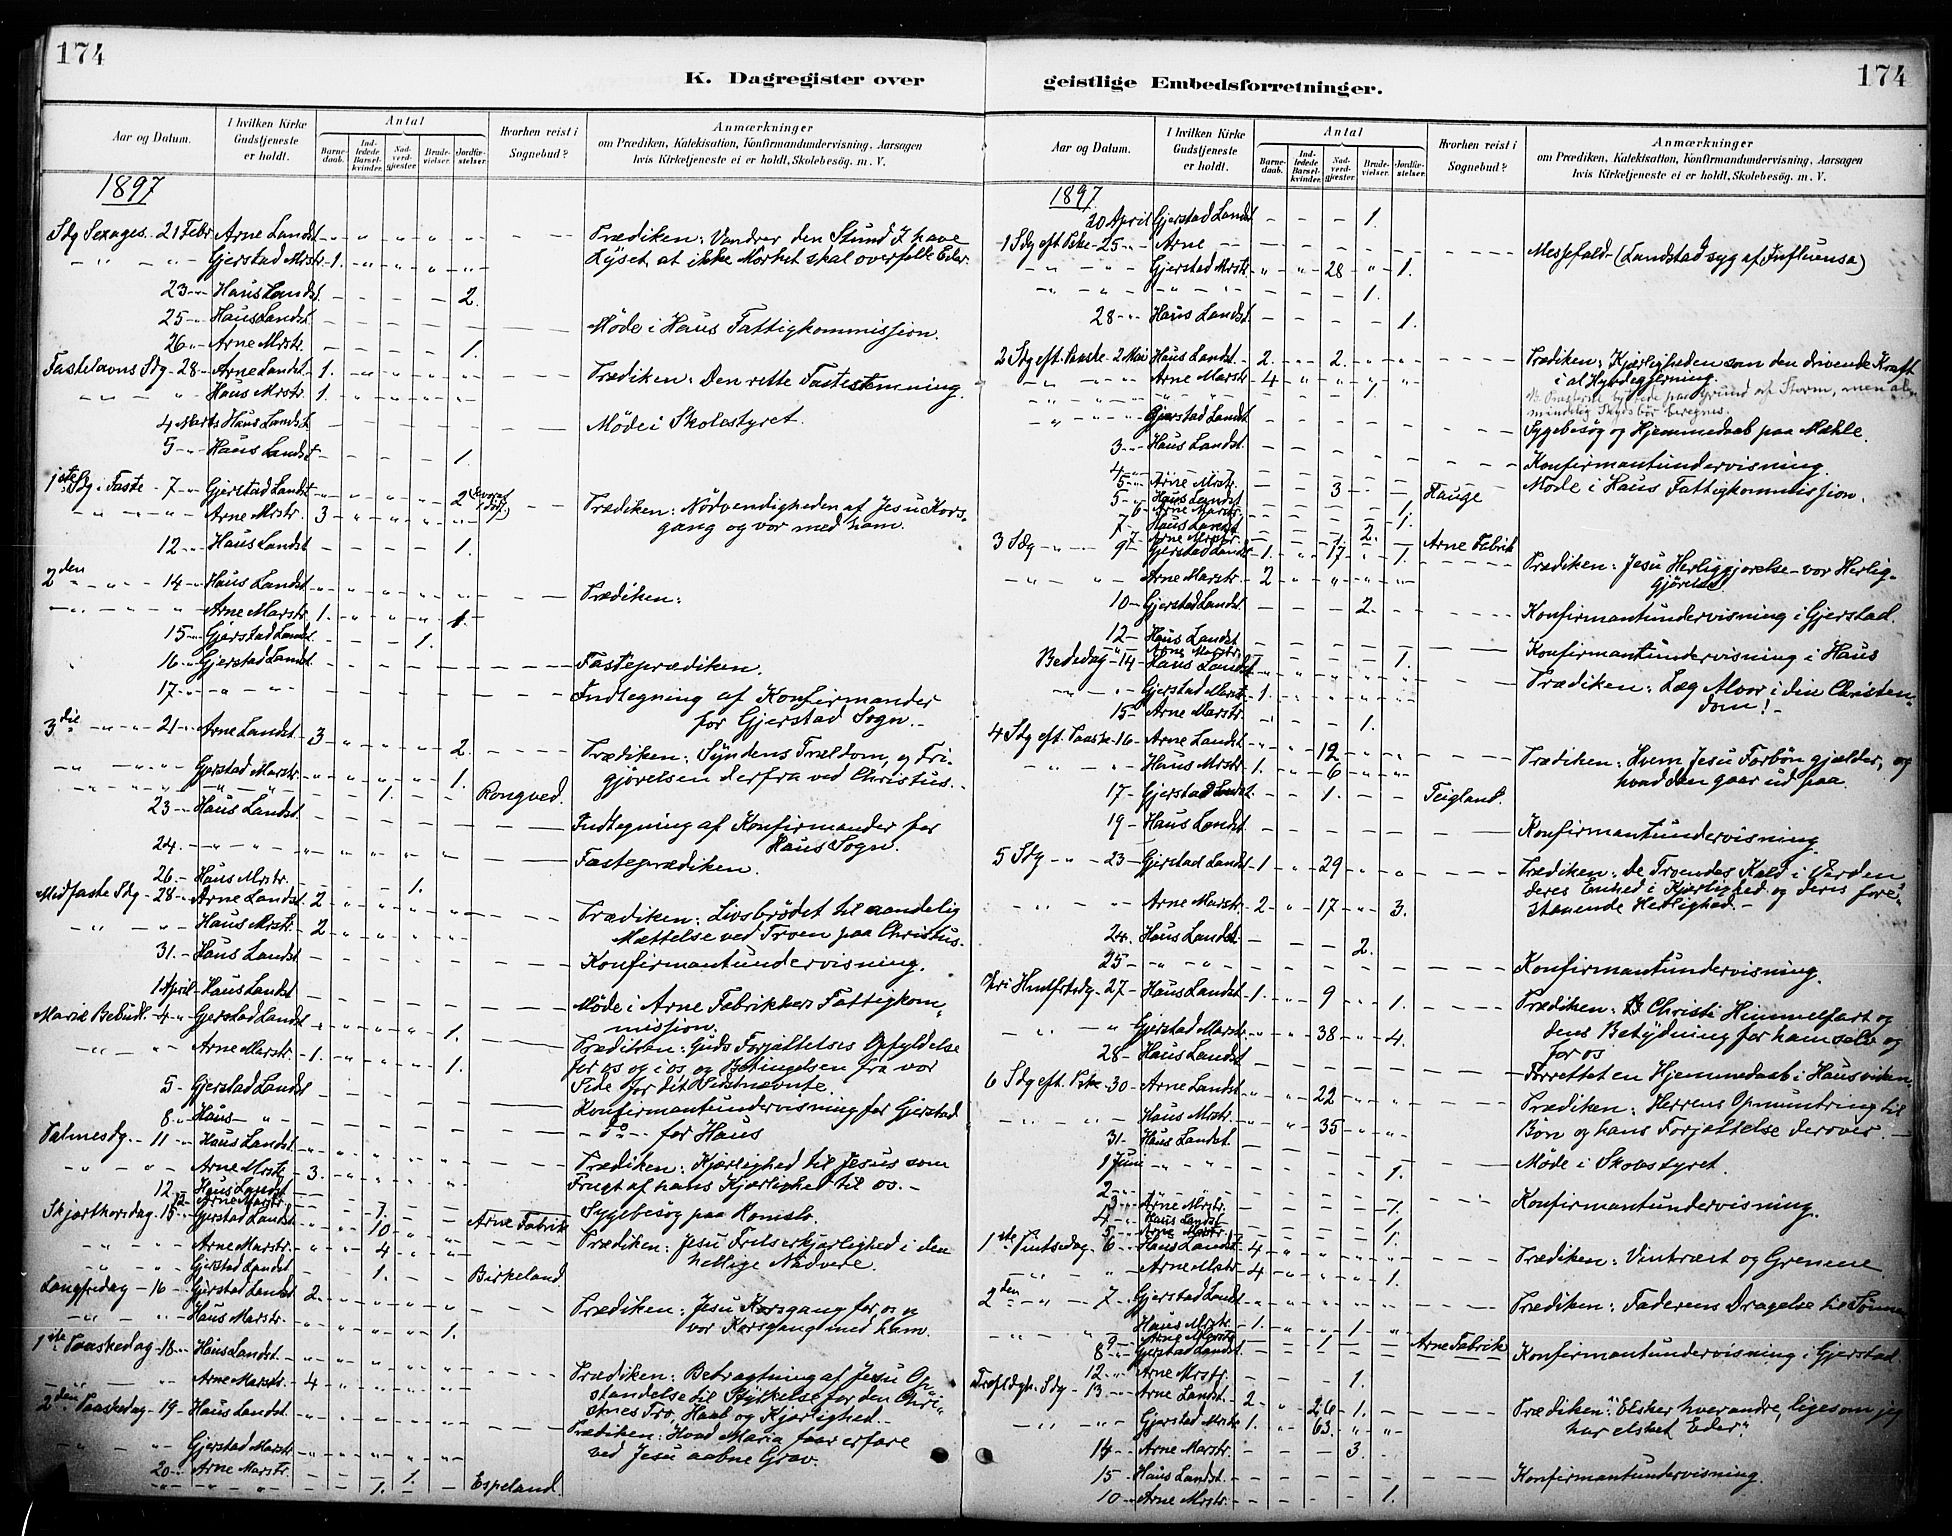 174
K. Dagregister over
Aar og Datum.
I hvilken Kirke Gudstjeneste er holdt.
Antal
Barnedaab.
Indledede Barselkvinder.
Nadverdgjester.
Brudevielser.
Jordfæstelser.
Hvorhen reist i Sognebud?
Anmærkninger
om Prædiken, Katekisation, Konfirmandundervisning, Aarsagen
hvis Kirketjeneste ei er holdt, Skolebesøg. m. V.
1897
Sdg Sexages. 21 Febr Arne Landst. Prædiken: Vandrer den Stund I have
Gjerstad Mrstr. 1. Lyset, at ikke Mørket skal overfalde Eder.
23 Haus Landst. 2.
25 Haus Landst. Møde i Haus Fattigkommission.
26 Arne Mrstr. 1.
Fastelavns Sdg 28 Arne Landst. 1. Prædiken: Den rette Fastestemning.
Haus Mrstr. 1.
4 Marts Haus Landst Møde i Skolestyret.
5 Haus Landst 1.
1ste Sdg i Faste 7 Gjerstad Landst 2 Prædiken: Nødvendigheden af Jesu Kors-
Arne Mrstr. 3 gang og vor med ham.
12 Haus Landst 1.
2den 14 Haus Landst Prædiken:
Arne Marstr 1. 1.
15 Gjerstad Landst. 1.
16 Gjerstad Landst. Fasteprædiken.
17 Indtegning af Konfirmander
for Gjerstad Sogn.
3die 21 Arne Landst. 3 2. Prædiken: Syndens Trældom, og Fri-
Gjerstad Marstr. 1. gjørelsen derfra ved Christus.
1. Rongved.
23 Haus Landst. Indtegning af Konfirmander for
Haus Sogn.
24. Fasteprædiken.
26. Haus Mrstr. 1.
Midfaste Sdg 28 Arne Landst. 2 Prædiken: Livsbrødet til aandelig
Haus Mrstr. 2 Mættelse ved Troen paa Christus.
31. Haus Landst Konfirmantundervisning.
1 April Haus Landst Møde i Arne Fabrikkers Fattigkom-
mission.
Mariæ Bebud. 4 Gjerstad Landst 1. Prædiken: Guds Forjættelses Opfyldelse
Arne Marstr. 1. 1. for os og i os, og Betingelsen fra vor
Side for dit Sidstnævnte.
5 Gjerstad Landst Konfirmantundervisning for Gjerstad
8 Haus do for Haus
Palmesdg. 11 Haus Landst. Prædiken: Kjærlighed til Jesus som
Arne Mrstr. 3. Frugt af hans Kjærlighed til os.
12 Haus Landst Sygebesøg paa Romslo.
12 Arne Marstr. 1. Arne Fabrik
Skjærthorsdag 15 Gjerstad Landst 10 Prædiken: Jesu Frelserkjærlighed i den
Arne Marstr. 4 hellige Nadvere.
Gjerstad Landst 1. Birkeland
Langfredag 16 Gjerstad Landst 2. Prædiken: Jesu Korsgang for os og
Haus Marstr. 1. vor Korsgang med ham.
1ste Paaskedag 18 Haus Landst.
Arne Marstr. 4 Prædiken: Betragtning af Jesu Op-
standelse til Styrkelse for den Chri-
stnes Tro, Haab og Kjærlighed.
2den Paaskedag 19 Haus Landst. Prædiken: Hvad Maria faar erfare
Gjerstad Marstr. ved Jesu aabne Grav.
20 Arne Marstr. 1.
1. Espeland.
174
geistlige Embedsforretninger.
Aar og Datum.
I hvilken Kirke Gudstjeneste er holdt.
Antal
Barnedaab.
Indledede Barselkvinder.
Nadverdgjester.
Brudevielser.
Jordfæstelser.
Hvorhen reist i Sognebud?
Anmærkninger
om Prædiken, Katekisation, Konfirmandundervisning, Aarsagen
hvis Kirketjeneste ei er holdt, Skolebesøg. m. V.
1897.
20 April Gjerstad Landst 1.
1 Sdg eft. Pske 25 Arne Messefald (Landstad syg af Influensa)
Gjerstad Mrstr 28 1.
1.
28 Haus Landst. 1.
2 Sdg eft. Paaske 2 Mai Haus Landst. 2. 2. Prædiken: Kjærligheden som den drivende Kraft
Arne Marstr 4 i al Hyrdegjerning.
1.
Gjerstad Landst Sygebesøg og Hjemmedaab paa Mæhle.
3 Haus Landst. Konfirmantundervisning.
4 Møde i Haus Fattigkommission.
5 Arne Mrstr. 3 Hauge
5 Haus Landst 1.
6 Arne Marstr. 1.
7 Haus Landst 2.
7 Arne Mrstr. 1. Arne Fabrik
3 Sdg 9 Gjerstad Landst 1. 17 1. Prædiken: Jesu Herliggjørelse - vor Herlig-
Arne Marstr. 2 gjørelse
10 Gjerstad Landst. 2. Konfirmantundervisning i Gjerstad.
12 Haus Landst Konfirmantundervisning i Haus
Arne Marstr. 1.
Bededag 14 Haus Landst Prædiken: Læg Alvor i din Christen-
Gjerstad Marstr 1. dom!
15 Arne Marstr. 1.
4 Sdg eft. Paaske 16 Arne Landst. 12 Prædiken: Hvem Jesu Forbøn gjælder, og
Haus Mrstr. 1. 6 hvad den gaar ud paa.
17 Gjerstad Landst. 1. Teigland.
19 Haus Landst. Konfirmantundervisning.
5 Sdg 23 Gjerstad Landst. 1 29 Prædiken: De Troendes Kald i Verden
deres Enhed i Kjærlighed og deres fore-
Arne Marstr. 2 17 3. staaende Herlighed.
24. Haus Landst. 2.
25 Konfirmantundervisning.
Kri Himlfrtsdg 27 Haus Landst. 1. 9 1. Prædiken: Christi Himmelfart og
Gjerstad Marstr. 38 4. dens Betydning for ham selv og
for os
28 Haus Landst Forrettet en Hjemmedaab i Hausviken.
6 Sdg eft. Pske 30 Arne Landst 22 Prædiken: Herrens Opmuntring til
Haus Mrstr. 35 Bøn og hans Forjættelse derover.
31. Haus Landst. Møde i Skolestyret.
1 Juni 1.
2 Konfirmantundervisning.
3 Arne Mrstr. 1.
4 Haus Landst
5 Arne Marstr 1.
1ste Pintsedag 6 Haus Landst 4 Prædiken: Vintræet og Grenene.
Arne Mrstr 4 1.
2den 7 Gjerstad Landst. Prædiken: Faderens Dragelse til Sønnen
Haus Mrstr. 1. 1
9 Arne Marstr 1 Arne Fabrik
8 Gjerstad Landst. Konfirmantundervisning i Gjerstad
12 Arne Mrstr. 1.
Trefldgh. Sdg 13 Arne Landst. 2 26 1. Prædiken: "Elsker hverandre, ligesom jeg
Gjerstad Mrstr 1. 63. har elsket Eder."
14 Arne Marstr. 3.
15 Haus Landst. Konfirmantundervisning.
10 Arne Mrstr. 1.